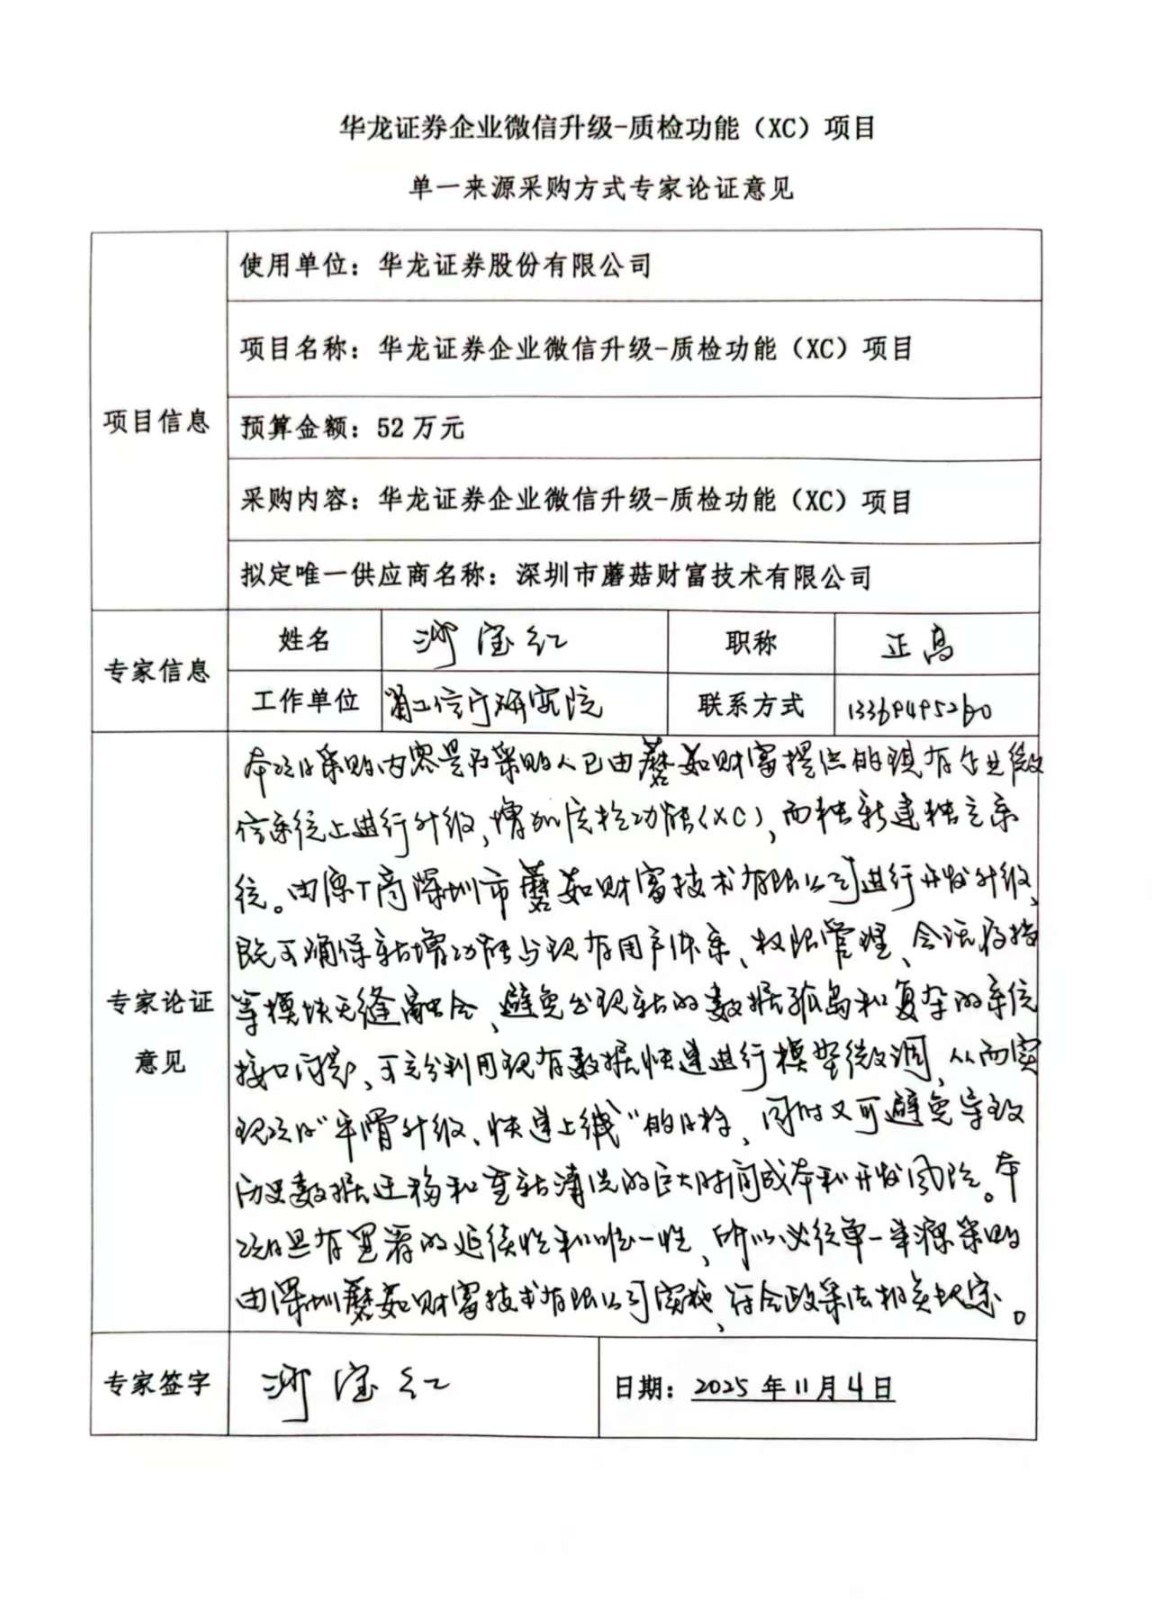 华龙证券企业微信升级-质检功能（XC）项目
单一来源采购方式专家论证意见
项目信息
使用单位：华龙证券股份有限公司
项目名称：华龙证券企业微信升级-质检功能（XC）项目
预算金额：52万元
采购内容：华龙证券企业微信升级-质检功能（XC）项目
拟定唯一供应商名称：深圳市蘑菇财富技术有限公司
专家信息
姓名
宝红
职称
正高
工作单位
工信厅研究院
联系方式
13369495260
专家论证
意见
本次的采购内容是在采购人已由蘑菇财富提供的现有企业微
信系统上进行升级，增加质检功能（XC），而非新建独立系
统。由原厂商深圳市蘑菇财富技术有限公司进行开发升级，
既可确保新增功能与现有用户体系、权限管理、会话存档
等模块无缝融合，避免出现新的数据孤岛和复杂的系统
接口问题，可充分利用现有数据快速进行模型微调，从而实
现项目“平滑升级、快速上线”的目标，同时又可避免导致
历史数据迁移和重新清洗的巨大时间成本和开发风险。本
项目具有显著的延续性和唯一性，所以必须单一来源采购
由深圳蘑菇财富技术有限公司实施，符合政采法相关规定。
专家签字
宝红
日期：2025年11月4日